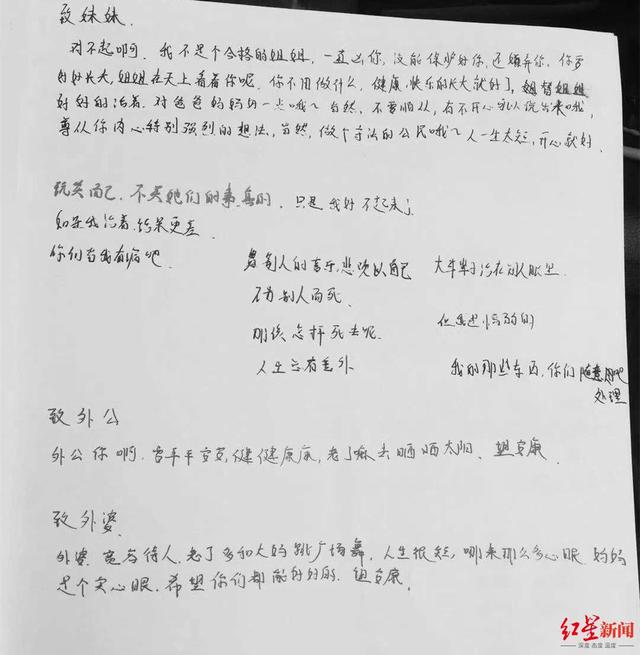 致妹妹.
对不起啊. 我不是个合格的姐姐, 一直凶你, 没能保护好你, 还嫌弃你. 你要
好好长大, 姐姐在天上看着你呢. 你不用做什么, 健康、快乐的长大就好, 姐姐
好好的活着. 对爸爸妈妈好一点哦~ 当然, 不要顺从, 有不开心就说出来哦,
尊从你内心特别强烈的想法, 当然, 做个守法的公民哦~ 人一生太短, 开心就好.
玩笑而已. 不关她们的事, 真的. 只是我好不起来了
如果我活着, 结果更差
你们当我有病吧.
别人的喜乐, 悲欢以自己
大半辈子活在别人眼里.
不为别人而死.
但是是怯弱的
那该怎样死去呢.
人生会有意外
我的那些东西, 你们随意
处理
致外公
外公你啊. 要平平安安, 健健康康, 老了嘛去晒晒太阳、 安康.
致外婆
外婆. 宽为待人. 老了多和大妈跳广场舞. 人生很短, 哪来那么多心眼. 妈妈
是个实心眼. 希望你们都能好好的. 安康.
红星新闻
深度 态度 温度